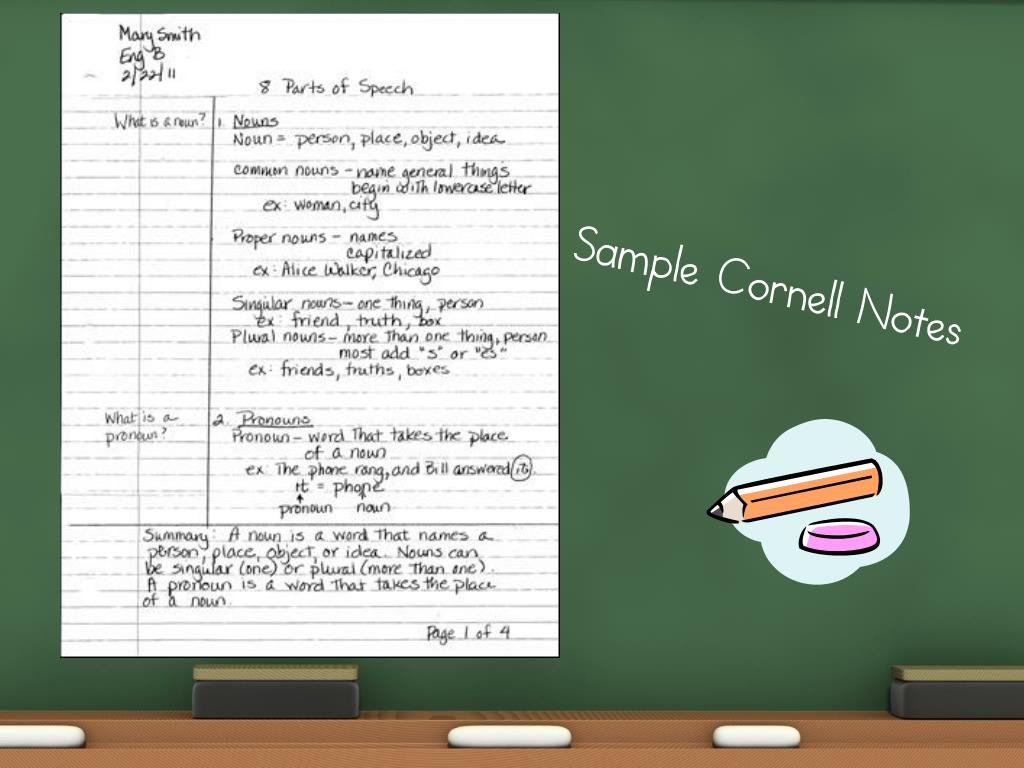 Mary Smith
Eng B
2/22/11
8 Parts of Speech
What is a noun?
1. Nouns
Noun = person, place, object, idea
common nouns - name general things
begin with lowercase letter
ex: woman, city
Proper nouns - names
capitalized
ex: Alice Walker, Chicago
Singular nouns - one thing, person
ex: friend, truth, box
Plural nouns - more than one thing, person
most add "s" or "es"
ex: friends, truths, boxes
What is a
pronoun?
2. Pronouns
Pronoun - word that takes the place
of a noun
ex: The phone rang, and Bill answered it.
it = phone
pronoun noun
Summary: A noun is a word that names a
person, place, object, or idea. Nouns can
be singular (one) or plural (more than one).
A pronoun is a word that takes the place
of a noun.
Page 1 of 4
Sample Cornell Notes